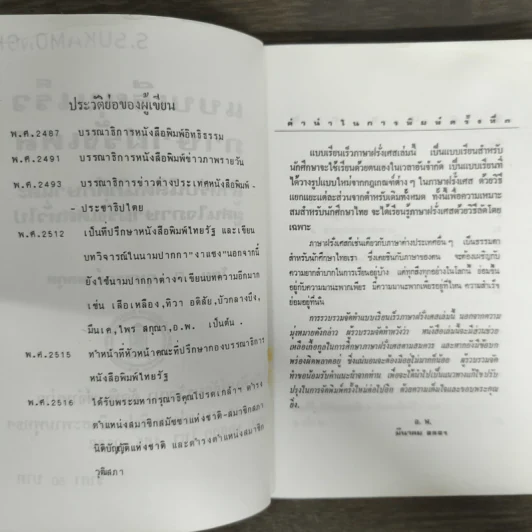 S.SUKAMONGK
ประวัติย่อของผู้เขียน
พ.ศ.2487 บรรณาธิการหนังสือพิมพ์อิทธิธรรม
พ.ศ.2491 บรรณาธิการหนังสือพิมพ์ข่าวภาพรายวัน
พ.ศ.2493 บรรณาธิการข่าวต่างประเทศหนังสือพิมพ์-
- ประชาธิปไตย
พ.ศ.2512 เป็นที่ปรึกษาหนังสือพิมพ์ไทยรัฐ และเขียน
บทวิจารณ์ในนามปากกา"งาแซง"นอกจากนี้
ยังใช้นามปากกาต่างๆเขียนบทความอีกมาก
เช่น เลือเหลือง,ทิวา อติสัย,บัวกลางบึง,
มีนเค,ไพร สกุณา,อ.พ. เป็นต้น.
พ.ศ.2515 ทำหน้าที่หัวหน้าคณะที่ปรึกษากองบรรณาธิการ
หนังสือพิมพ์ไทยรัฐ
พ.ศ.2516 ได้รับพระมหากรุณาธิคุณโปรดเกล้าฯ ดำรง
ตำแหน่งสมาชิกสมัชชาแห่งชาติ-สมาชิกสภา
นิติบัญญัติแห่งชาติ และดำรงตำแหน่งสมาชิก
วุฒิสภา
คำนำในการพิมพ์ครั้งที่๓
แบบเรียนเร็วภาษาฝรั่งเศสเล่มนี้ เป็นแบบเรียนสำหรับ
นักศึกษาจะใช้เรียนด้วยตนเองในเวลาอันจำกัด เป็นแบบเรียนที่
ได้วางรูปแบบใหม่จากกฎเกณฑ์ต่าง ๆ ในภาษาฝรั่งเศส ด้วยวิธี
แยกแยะแต่ละส่วนจากตำหรับเดิมทั้งหมด ทั้งนี้เพื่อความเหมาะ
สมสำหรับนักศึกษาไทย จะได้เรียนรู้ภาษาฝรั่งเศสด้วยวิธีลัดโดย
เฉพาะ
ภาษาฝรั่งเศสก็เช่นเดียวกับภาษาต่างประเทศอื่น ๆ เป็นธรรมดา
สำหรับนักศึกษาไทยเรา ซึ่งเคยชินกับภาษาของตน จะต้องเผชิญกับ
ความยากลำบากในการเรียนอยู่บ้าง แต่ทุกสิ่งทุกอย่างในโลกนี้ ย่อมขึ้น
อยู่กับความมานะพากเพียร นี่ความมานะพากเพียรอยู่ที่ไหน ความสำเร็จ
ย่อมอยู่ที่นั่น
การรวบรวมจัดทำแบบเรียนเร็วภาษาฝรั่งเศสเล่มนี้ นอกจากความ
มุ่งหมายดังกล่าว ผู้รวบรวมจัดทำหวังว่า หนังสือเล่มนี้จะมีส่วนช่วย